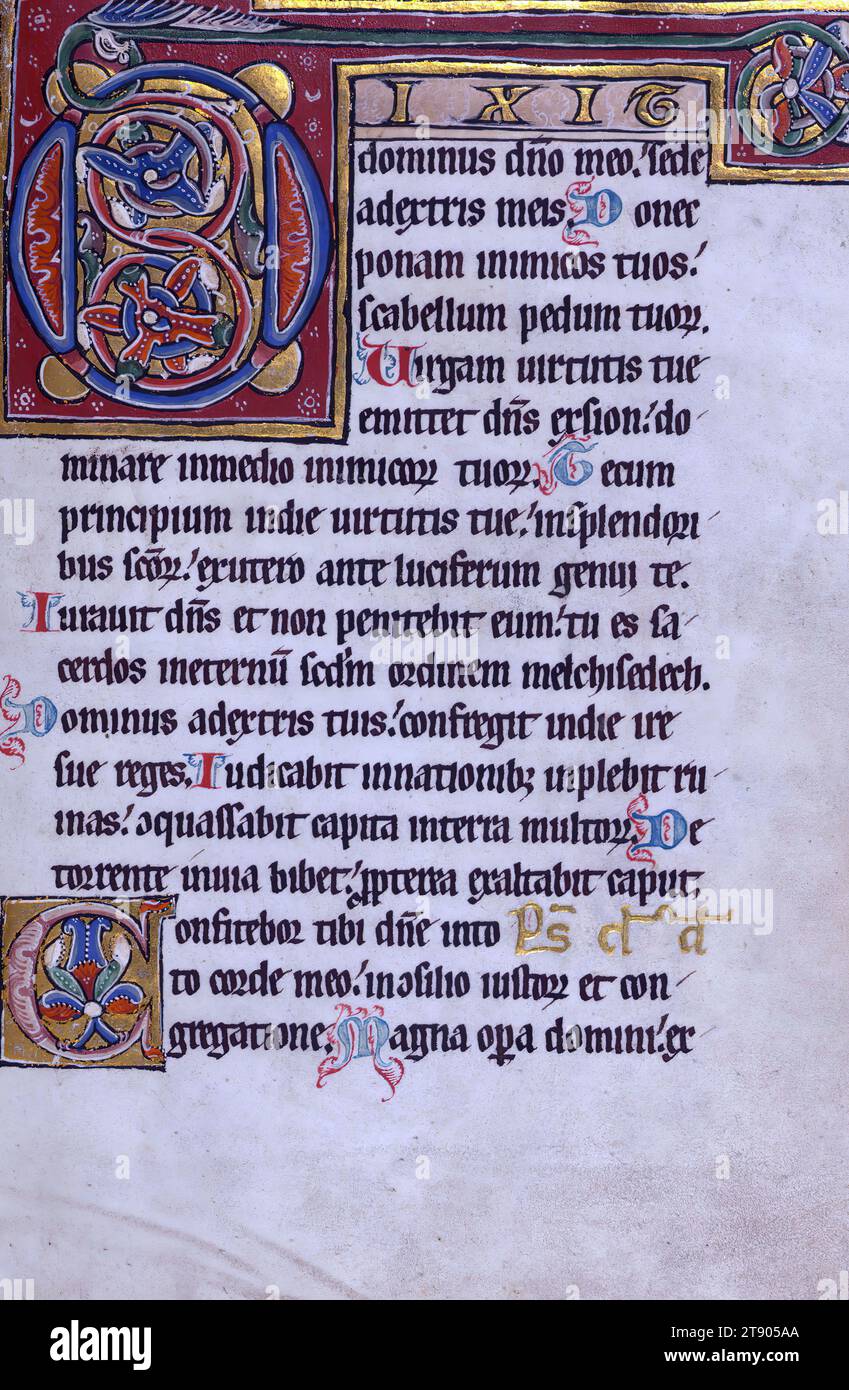 DIXIT
dominus dño meo.' sede
adextris meis. Donec
ponam inimicos tuos.'
scabellum pedum tuoꝝ.
Uirgam uirtutis tue
emittet dñs exsion.' do-
minare inmedio inimicoꝝ tuoꝝ. Tecum
principium indie uirtutis tue.' insplendori-
bus scõꝝ.' exutero ante luciferum genui te.
Iurauit dñs et non penitebit eum.' tu es sa
cerdos ineternũ scdm ordinem melchisedech.
Dominus adextris tuis.' confregit indie ire
sue reges. Iudicabit innationibꝫ inplebit ru
inas.' ꝯquassabit capita interra multoꝝ. De
torrente inuia bibet.' ꝓpterea exaltabit caput.
Confitebor tibi dñe into
to corde meo.' inꝯsilio iustoꝝ et con-
gregatione. Magna oꝑa domini.' ex-
alamy
Image ID: 2T905AA
www.alamy.com